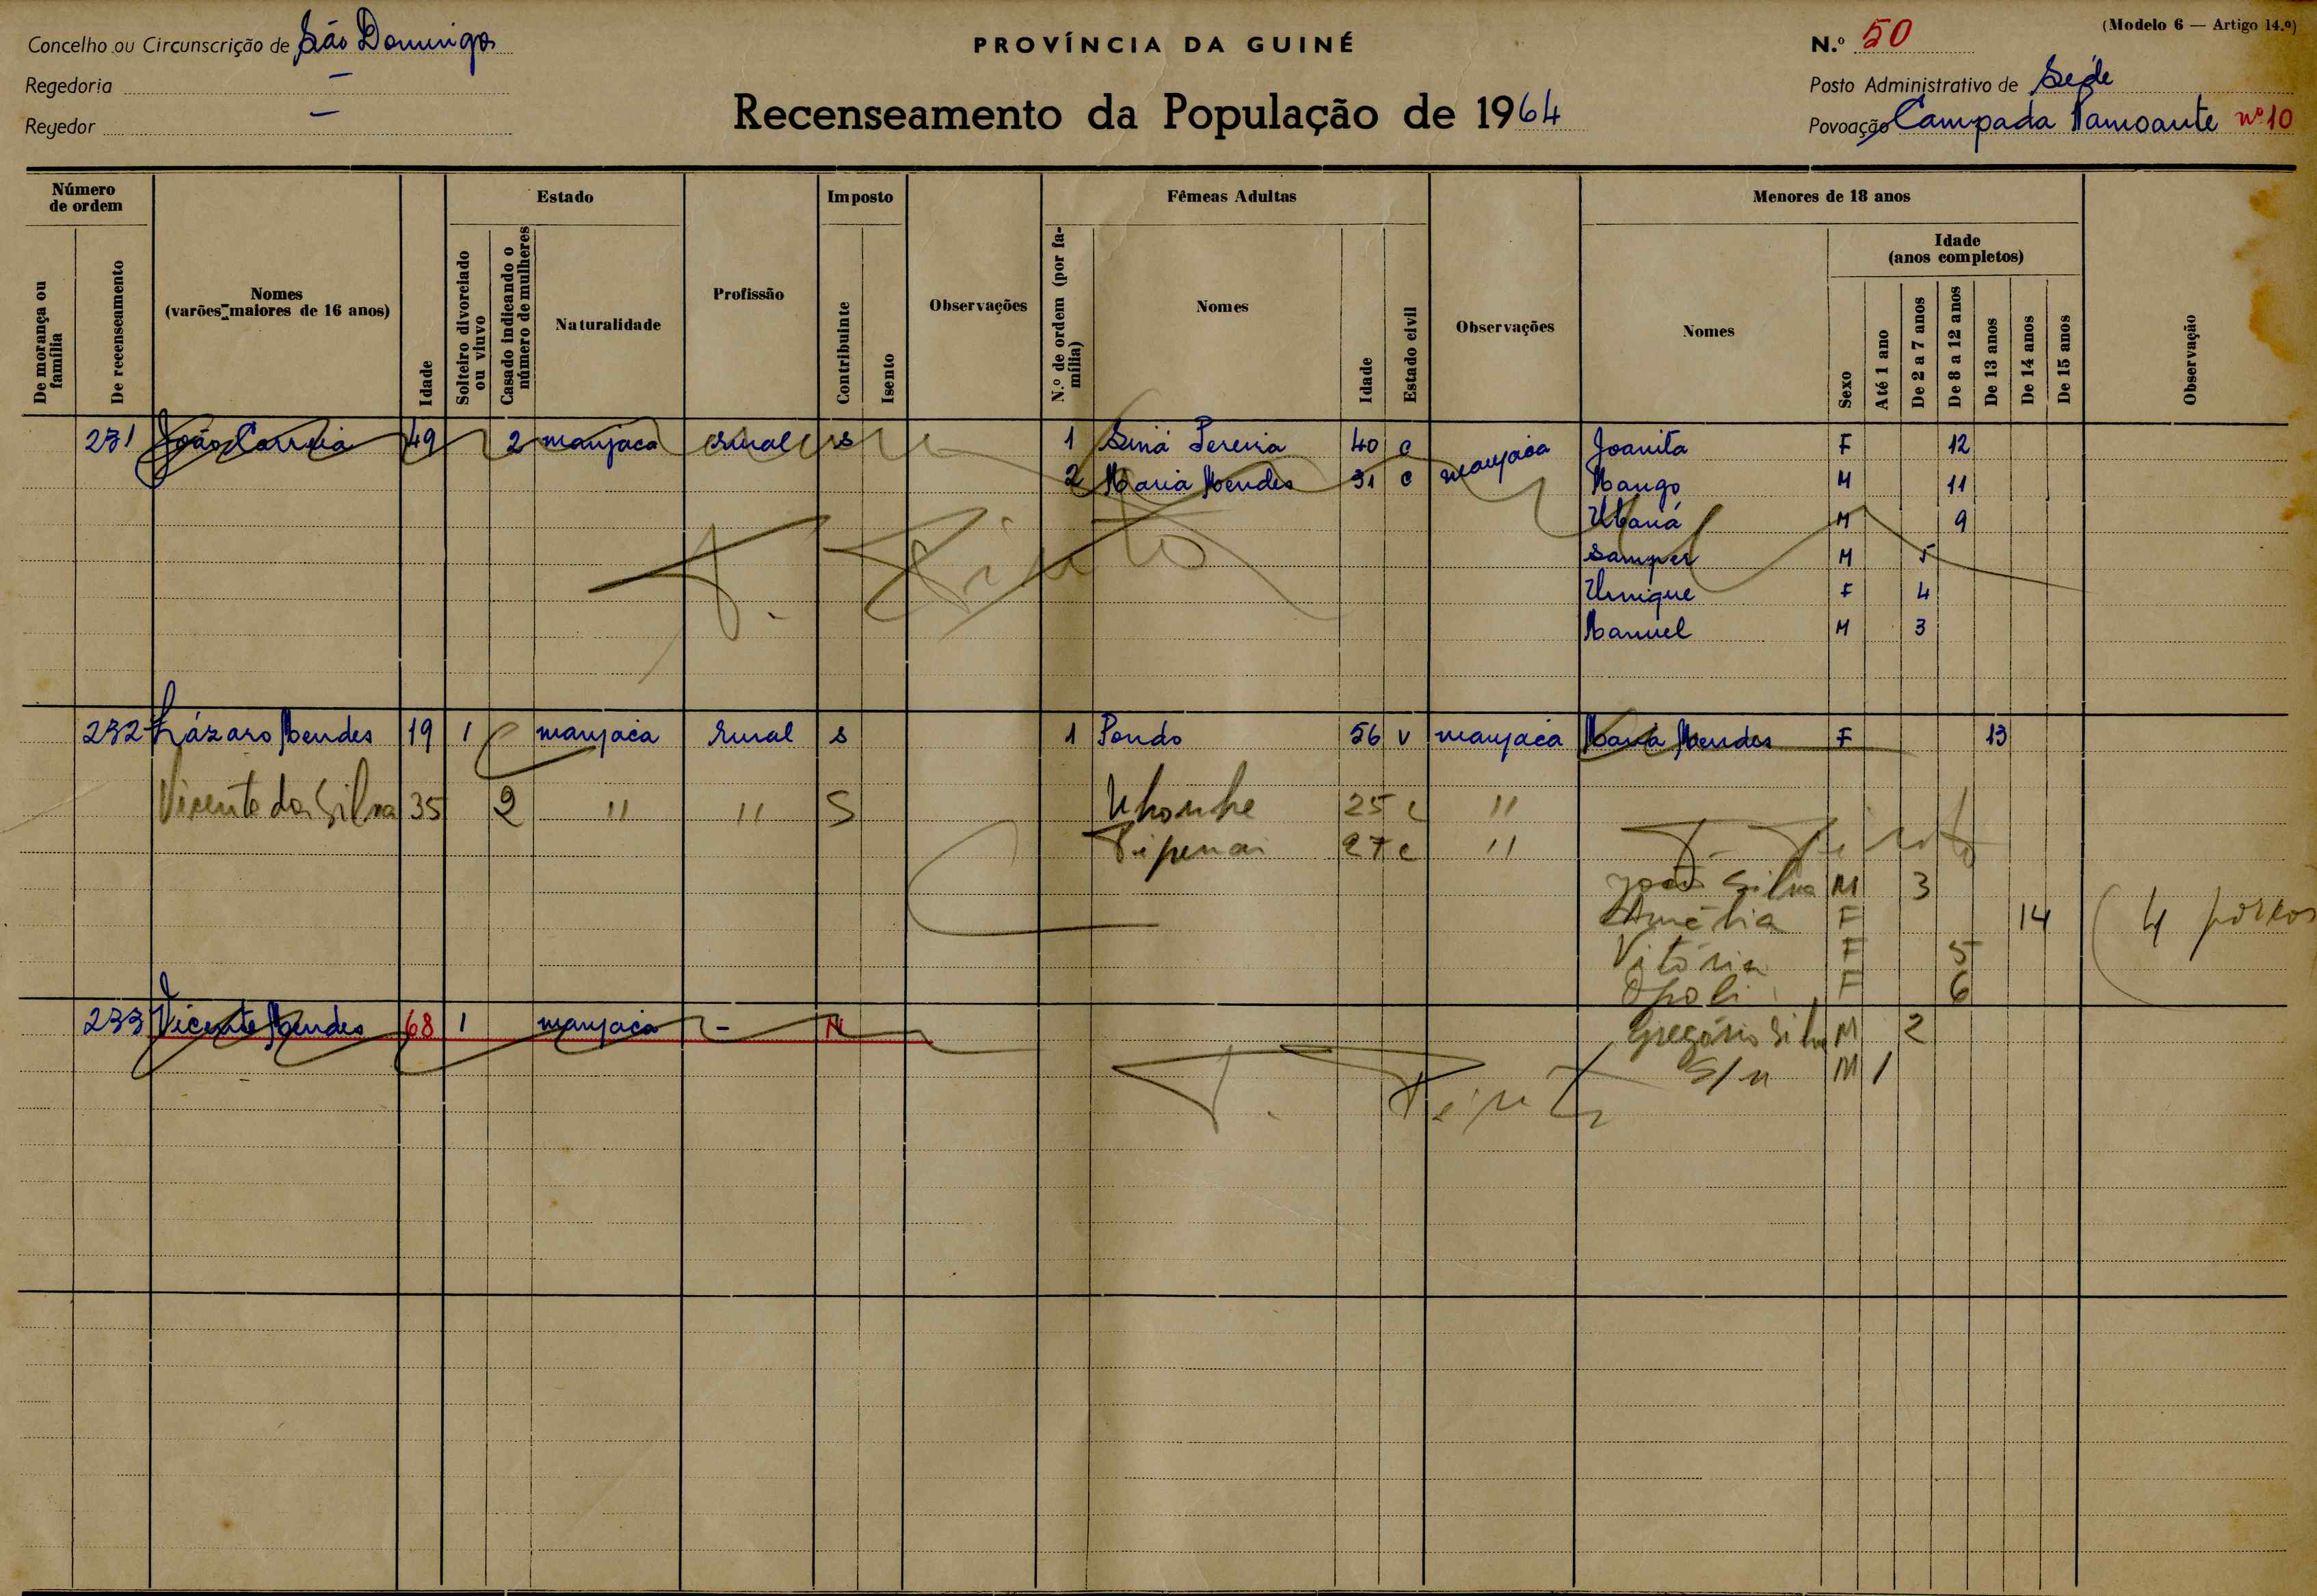 Concelho ou Circunscrição de São Domingos
Regedoria —
Regedor —
PROVÍNCIA DA GUINÉ
Recenseamento da População de 1964
(Modelo 6 — Artigo 14.º)
N.º 50
Posto Administrativo de Sede
Povoação Campada Namoante nº 10
Número de ordem
De morança ou família
De recenseamento
Nomes (varões maiores de 16 anos)
Idade
Estado
Solteiro divorciado ou viuvo
Casado indicando o número de mulheres
Naturalidade
Profissão
Imposto
Contribuinte
Isento
Observações
Fêmeas Adultas
N.º de ordem (por família)
Nomes
Idade
Estado civil
Observações
Menores de 18 anos
Nomes
Sexo
Idade (anos completos)
Até 1 ano
De 2 a 7 anos
De 8 a 12 anos
De 13 anos
De 14 anos
De 15 anos
Observação
231 João Correia 49 2 manjaca rural s 1 Siná Pereira 40 c manjaca Joanita F 12
2 Maria Mendes 31 c Mango M 11
Ubaná M 9
Samper M 5
Unique F 4
Manuel M 3
232 Lázaro Mendes 19 1 manjaca rural s 1 Pendo 56 v manjaca Maria Mendes F 13
Vicente da Silva 35 2 " " S 25 c "
27 c "
João Silva M 3
Amélia F 14 4 porcos
Vitória F 5
F 6
233 Vicente Mendes 68 1 manjaca - N Gregório Silva M 2
S/n M 1